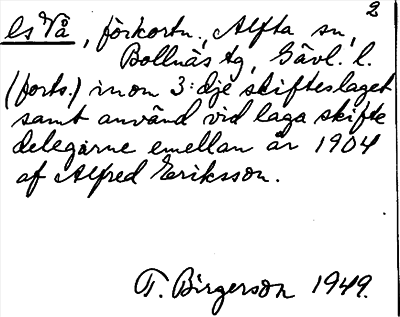 2
Es Vå, förkortn., Alfta sn,
Bollnäs tg, Gävl. l.
(forts.) inom 3:dje skifteslaget
samt använd vid laga skifte
delegarne emellan år 1904
af Alfred Eriksson.
T. Birgerson 1949.